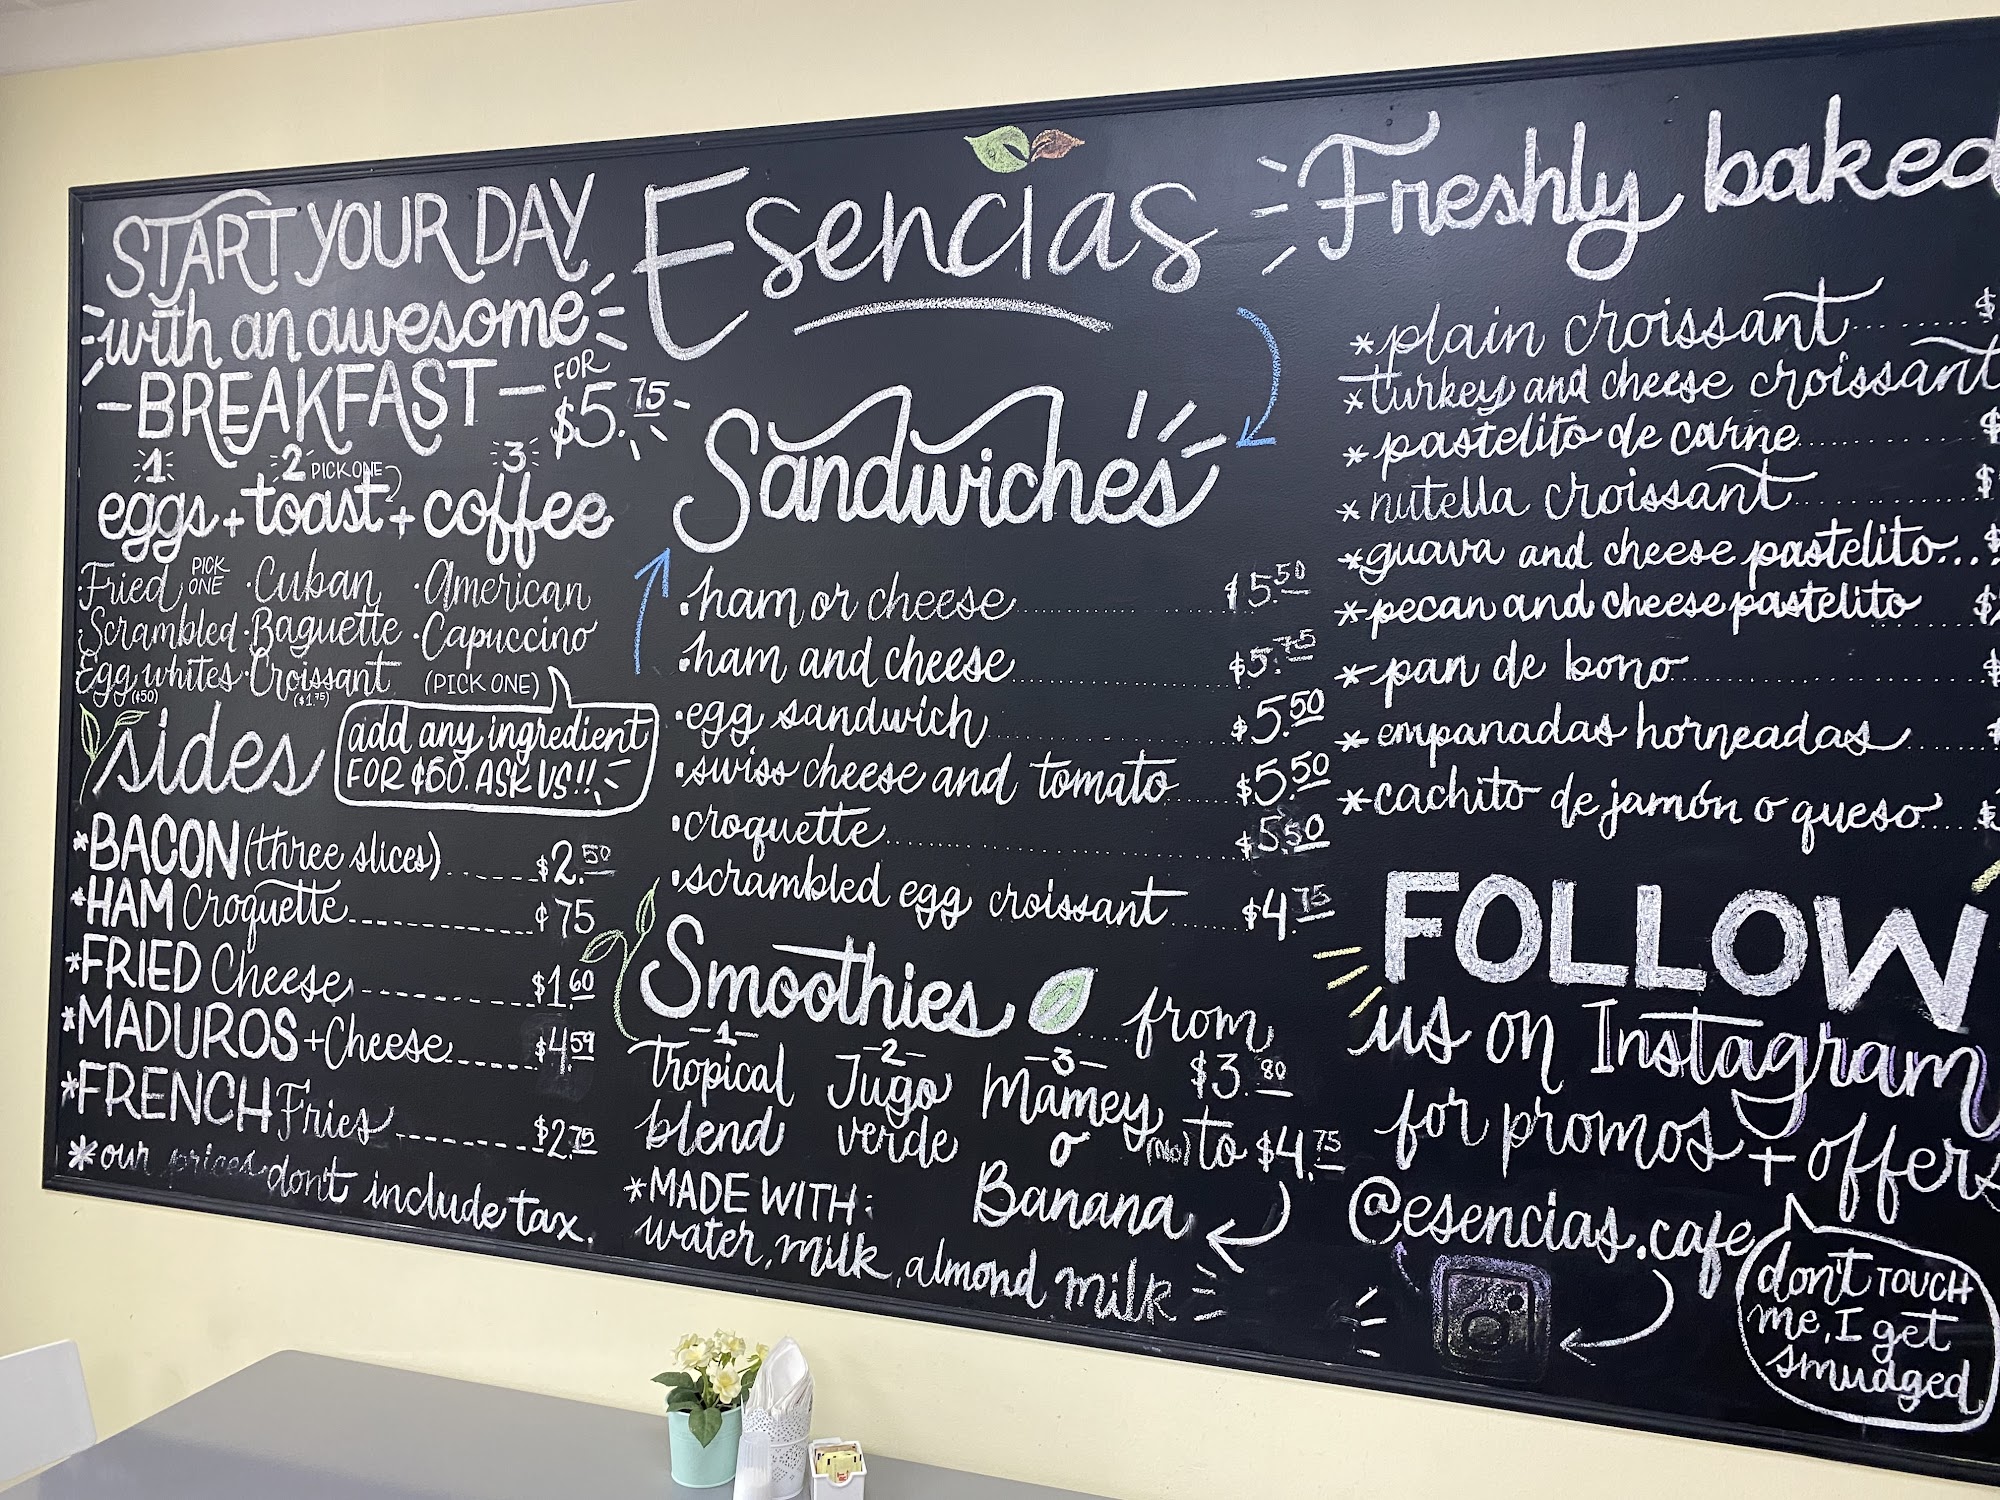 START YOUR DAY
with an awesome
BREAKFAST
FOR
$5.75
1 2 PICK ONE 3
eggs + toast + coffee
Fried PICK ONE · Cuban · American
Scrambled · Baguette · Capuccino
Egg whites · Croissant (PICK ONE)
($50) ($1.75)
sides
add any ingredient
FOR ¢60. ASK US!!
*BACON (three slices) $2.50
*HAM Croquette ¢75
*FRIED Cheese $1.60
*MADUROS + Cheese $4.59
*FRENCH Fries $2.75
*our prices don't include tax.
Esencias
Sandwiches
·ham or cheese $5.50
·ham and cheese $5.75
·egg sandwich $5.50
·swiss cheese and tomato $5.50
·croquette $5.50
·scrambled egg croissant $4.75
Smoothies from
1 2 3
Tropical Jugo Mamey $3.80
blend verde o to $4.75
Banana
*MADE WITH:
water, milk, almond milk
Freshly baked
*plain croissant $
*turkey and cheese croissant
*pastelito de carne $
*nutella croissant $
*guava and cheese pastelito... $
*pecan and cheese pastelito $
*pan de bono $
*empanadas horneadas $
*cachito de jamón o queso $
FOLLOW
us on Instagram
for promos + offers
@esencias.cafe
don't TOUCH
me, I get
smudged